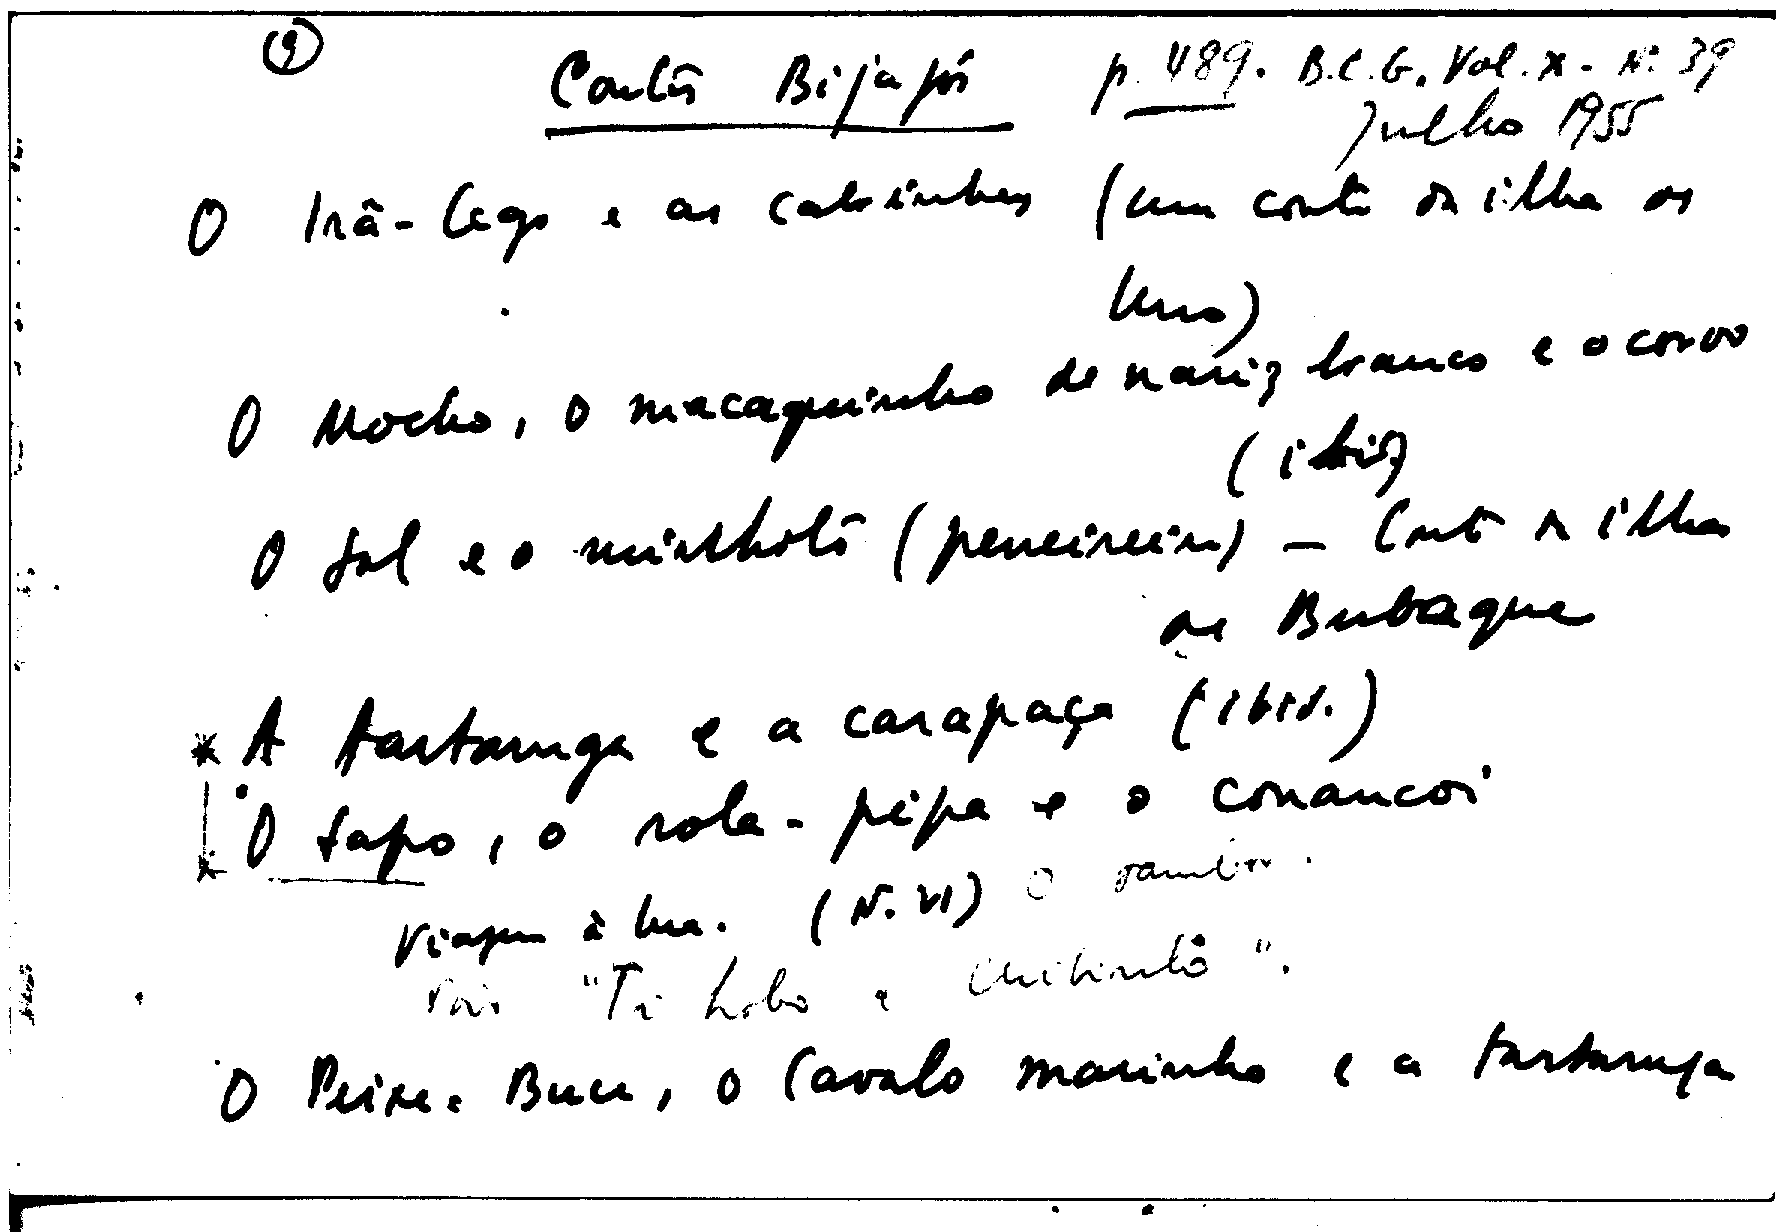 9
Contos Bijagós p. 489. B.C.G. Vol. X - Nº 39
Julho 1955
O Irã-Cego e as cabrinhas (um conto da ilha de
Uno)
O Mocho, o macaquinho de nariz branco e o corvo
(ibid)
O Sol e o minlhoto (peneireiro) – Conto da ilha
de Bubaque
* A tartaruga e a carapaça (ibid.)
* O Sapo, o rola-pipa e o conancoi
Viagem à lua. (N. VI) O tambor.
"Ti Lobo e Chibinhô".
O Peixe-Bucu, o Cavalo marinho e a tartaruga